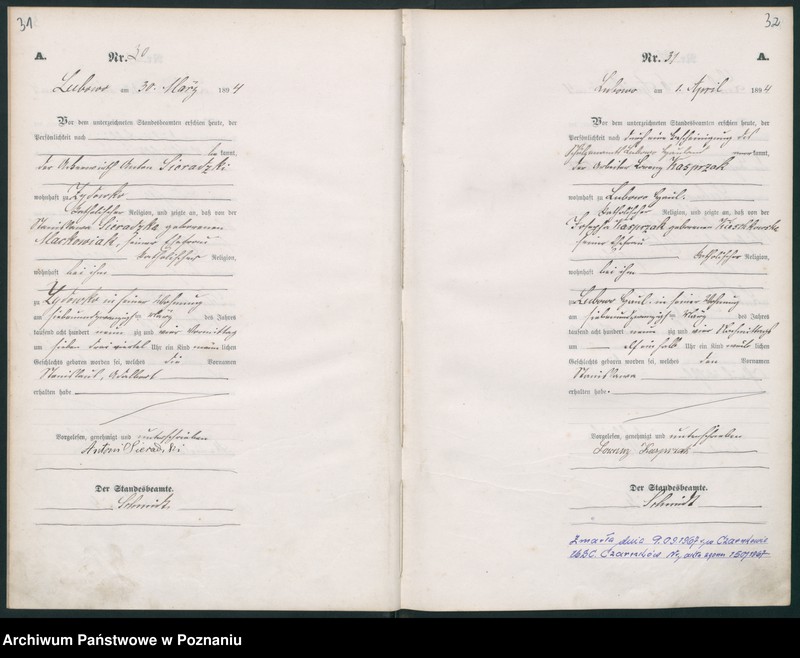 31
A.
Nr. 30
Lubowo am 30. März 1894
Vor dem unterzeichneten Standesbeamten erschien heute, der
Persönlichkeit nach
be kannt,
der Anton Sieradzki
wohnhaft zu Zydowko
katholischer Religion, und zeigte an, daß von der
Stanislawa Sieradzka geborenen
Markowiak, seiner Ehefrau
katholischer Religion,
wohnhaft bei ihm
zu Zydowko in seiner Wohnung
am siebenundzwanzigsten März des Jahres
tausend acht hundert neun zig und vier Vormittag
um sieben drei viertel Uhr ein Kind männlichen
Geschlechts geboren worden sei, welches die Vornamen
Stanislaus, Adalbert
erhalten habe
Vorgelesen, genehmigt und unterschrieben
Antoni Sieradzki
Der Standesbeamte.
Schmidt
32
Nr. 31
A.
Lubowo am 1. April 1894
Vor dem unterzeichneten Standesbeamten erschien heute, der
Persönlichkeit nach durch eine Bescheinigung des
Lubowo Hauland anerkannt,
der Arbeiter Lorenz Kasprzak
wohnhaft zu Lubowo Haul.
katholischer Religion, und zeigte an, daß von der
Josepha Kasprzak geborenen
seiner Ehefrau
katholischer Religion,
wohnhaft bei ihm
zu Lubowo Haul. in seiner Wohnung
am siebenundzwanzigsten März des Jahres
tausend acht hundert neun zig und vier Nachmittags
um elf ein halb Uhr ein Kind weiblichen
Geschlechts geboren worden sei, welches den Vornamen
Stanislawa
erhalten habe.
Vorgelesen, genehmigt und unterschrieben
Lorenz Kasprzak
Der Standesbeamte.
Schmidt
Zmarła dnia 9.09.1967 w Czarnkowie
USC. Czarnków Nr aktu zgonu 150/1967
Archiwum Państwowe w Poznaniu